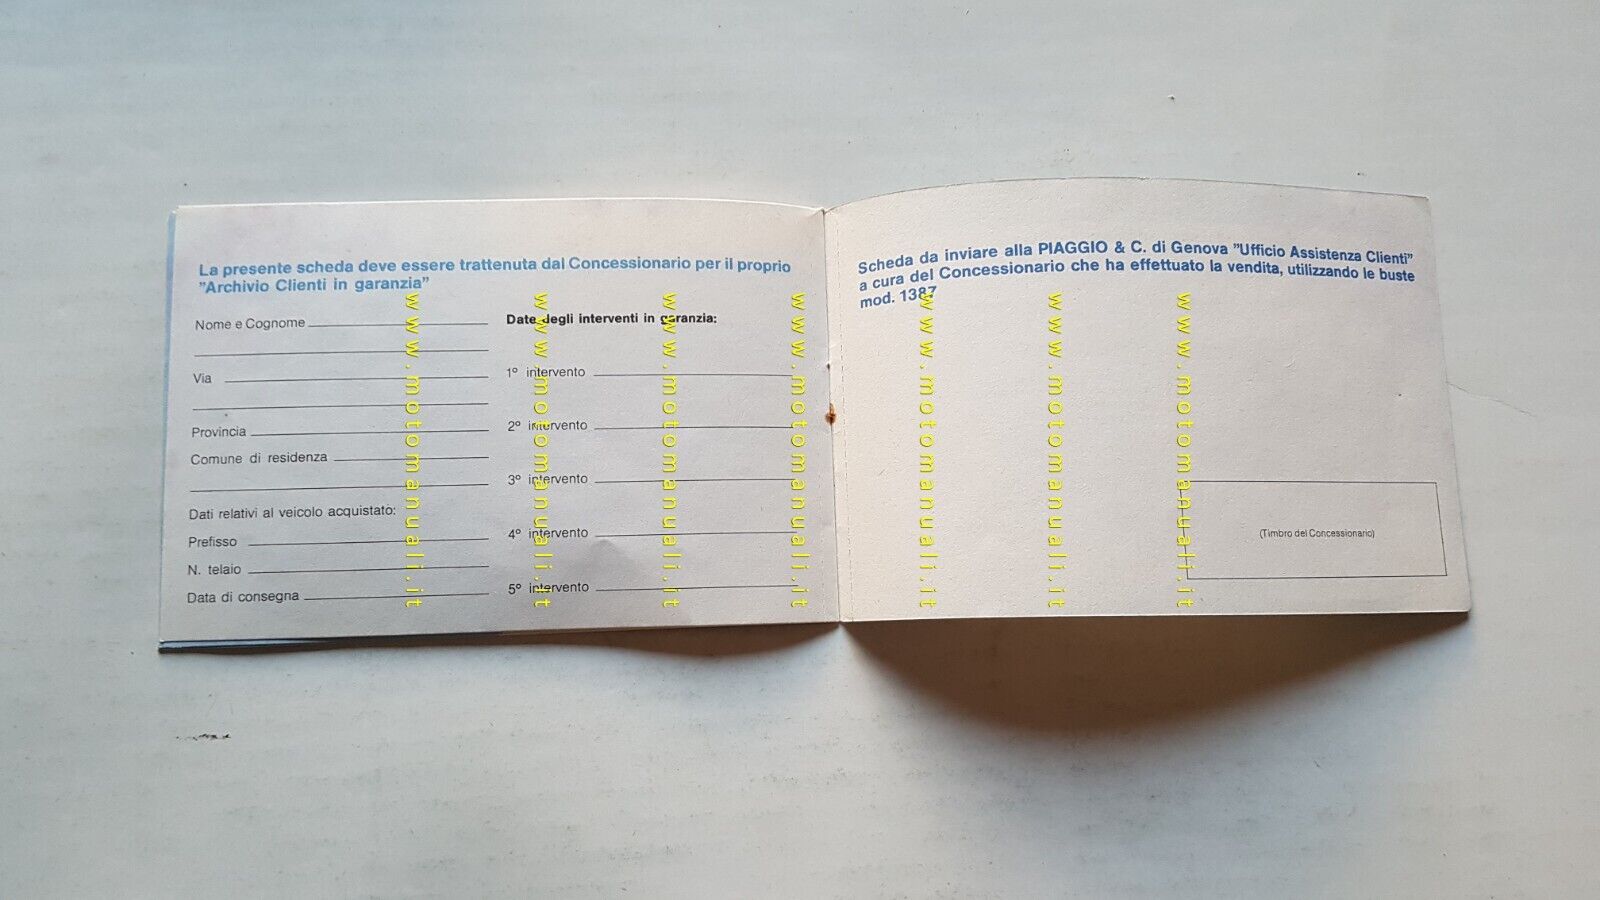 La presente scheda deve essere trattenuta dal Concessionario per il proprio
"Archivio Clienti in garanzia"
Nome e Cognome
Via
Provincia
Comune di residenza
Dati relativi al veicolo acquistato:
Prefisso
N. telaio
Data di consegna
Date degli interventi in garanzia:
1º intervento
2º intervento
3º intervento
4º intervento
5º intervento
Scheda da inviare alla PIAGGIO & C. di Genova "Ufficio Assistenza Clienti"
a cura del Concessionario che ha effettuato la vendita, utilizzando le buste
mod. 1387
(Timbro del Concessionario)
www.motomanuali.it
www.motomanuali.it
www.motomanuali.it
www.motomanuali.it
www.motomanuali.it
www.motomanuali.it
www.motomanuali.it